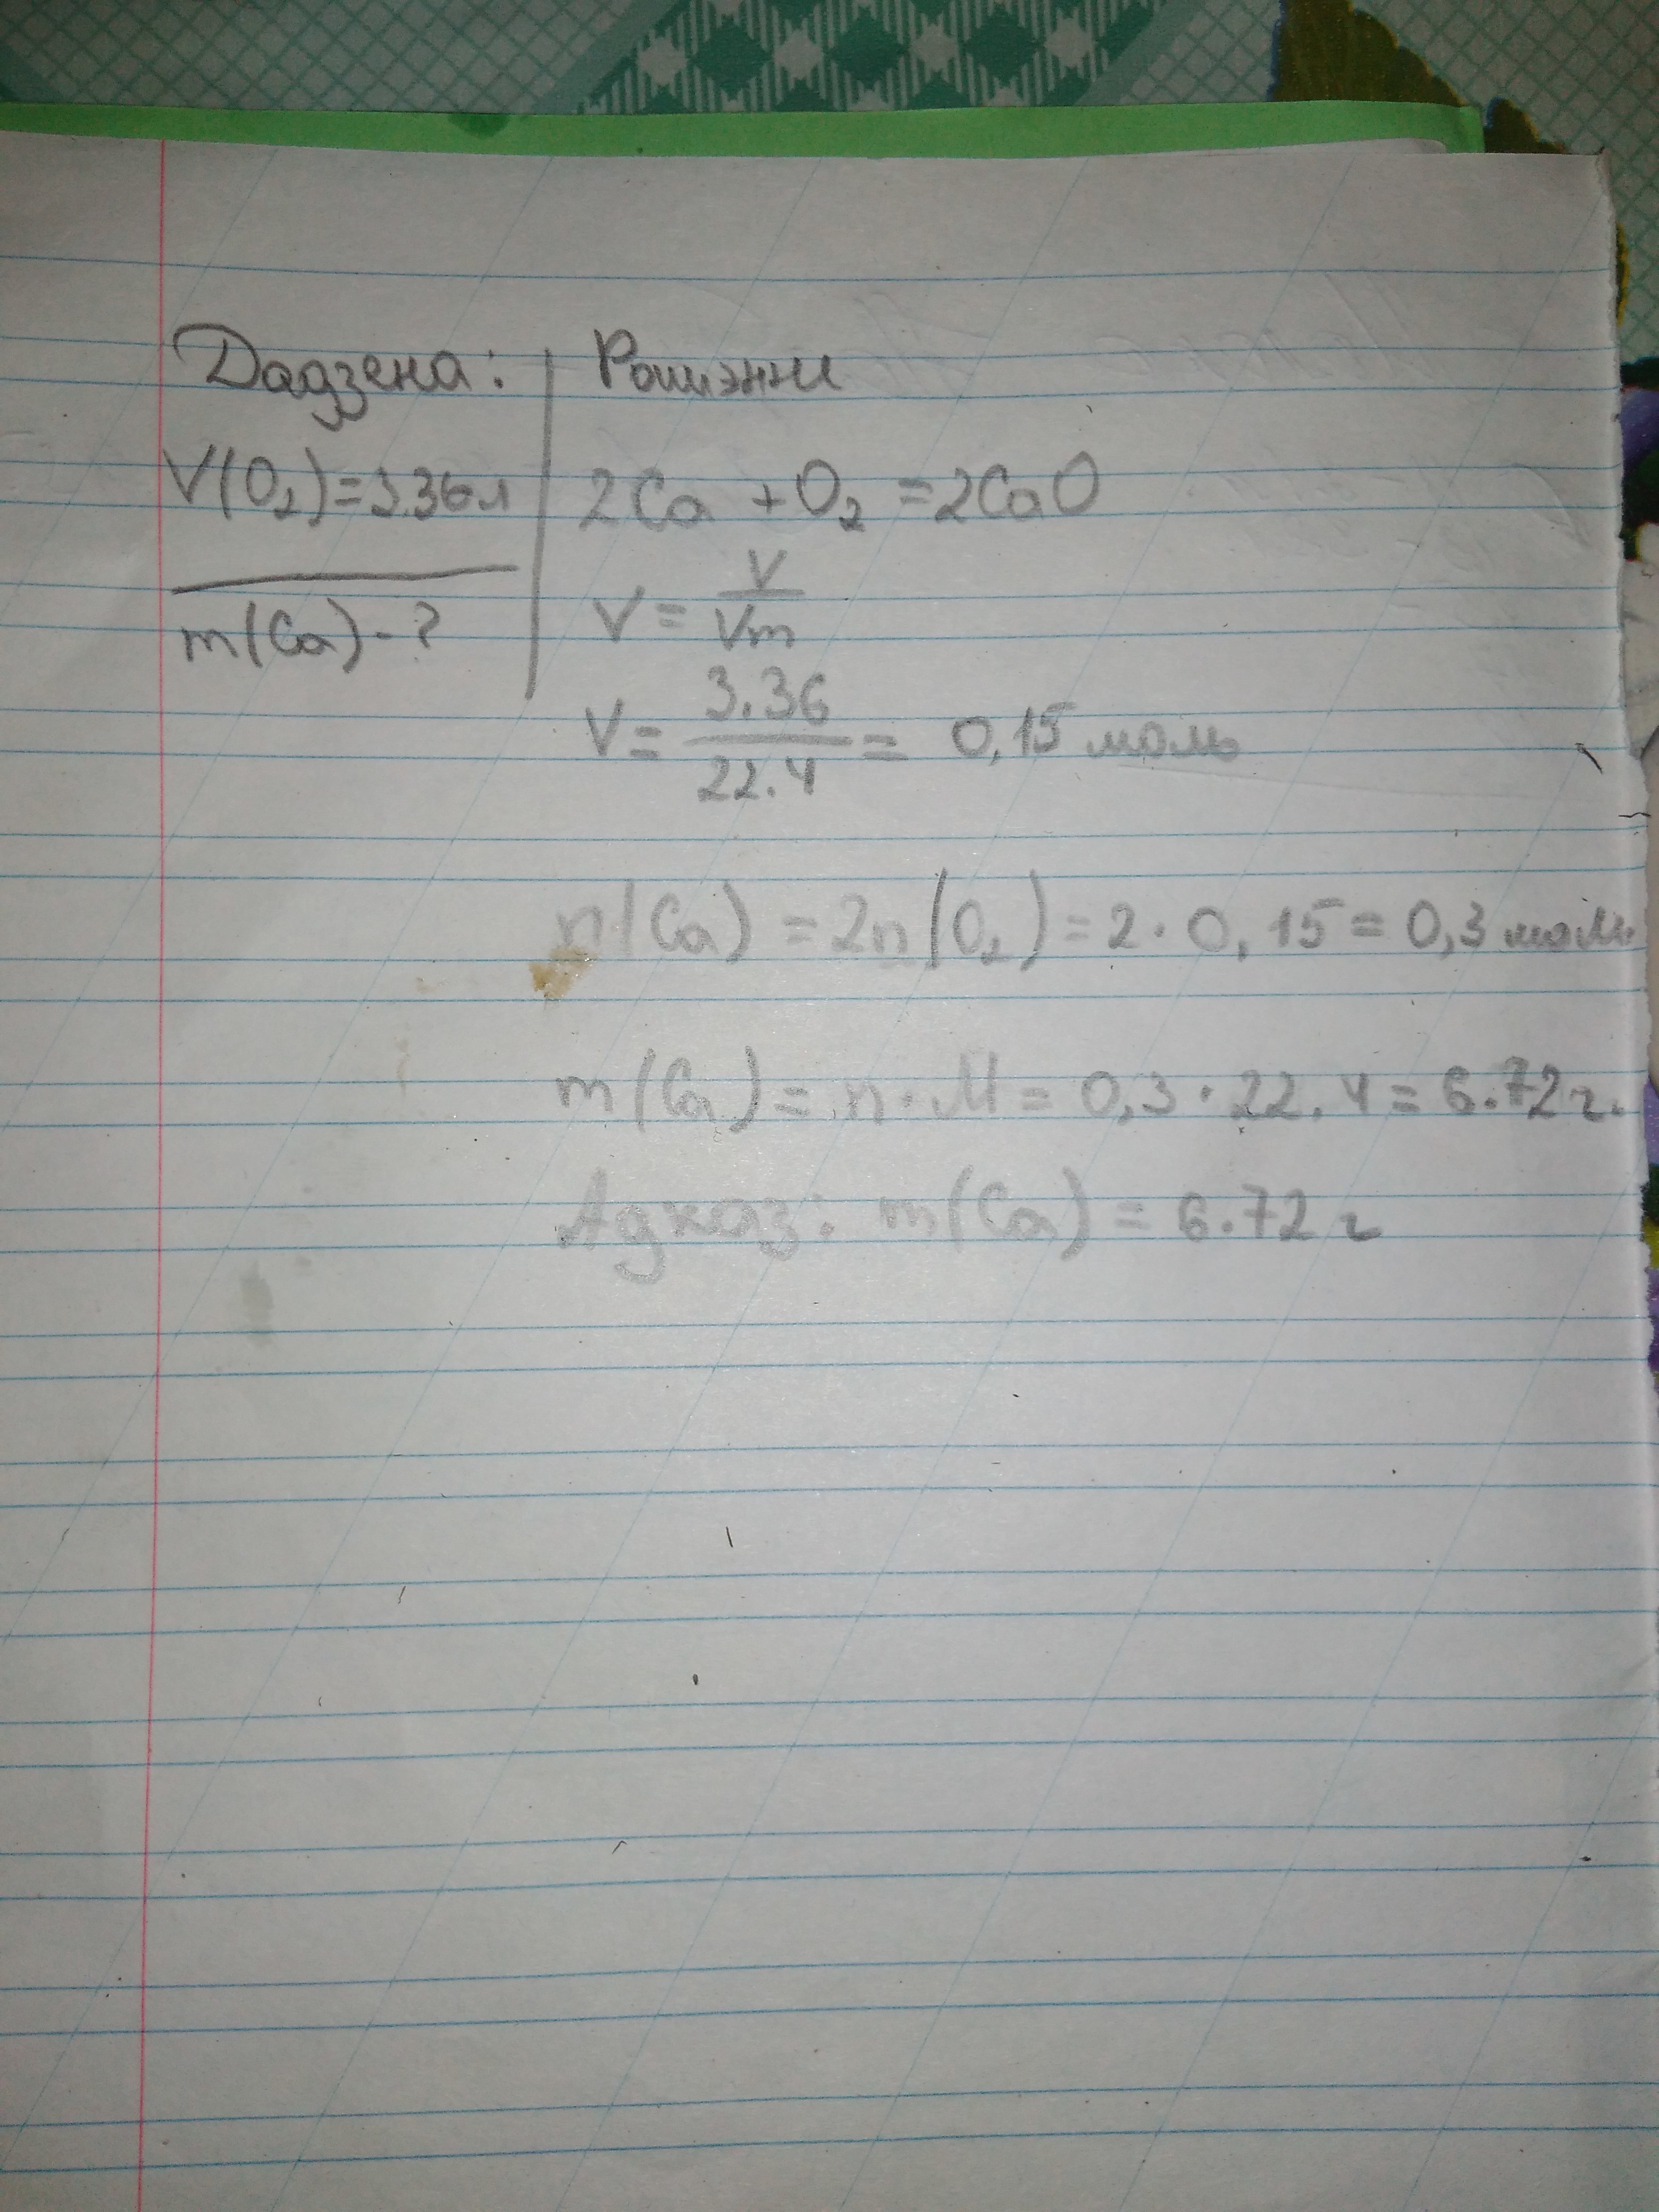 Дадзена:
V(O₂)=3.36л
m(Ca)-?
Рашэнне
2Ca + O₂ = 2CaO
V = V/Vm
V = 3.36/22.4 = 0,15 моль
n(Ca) = 2n(O₂) = 2·0,15 = 0,3 моль
m(Ca) = n·M = 0,3·22.4 = 6.72г.
Адказ: m(Ca) = 6.72г